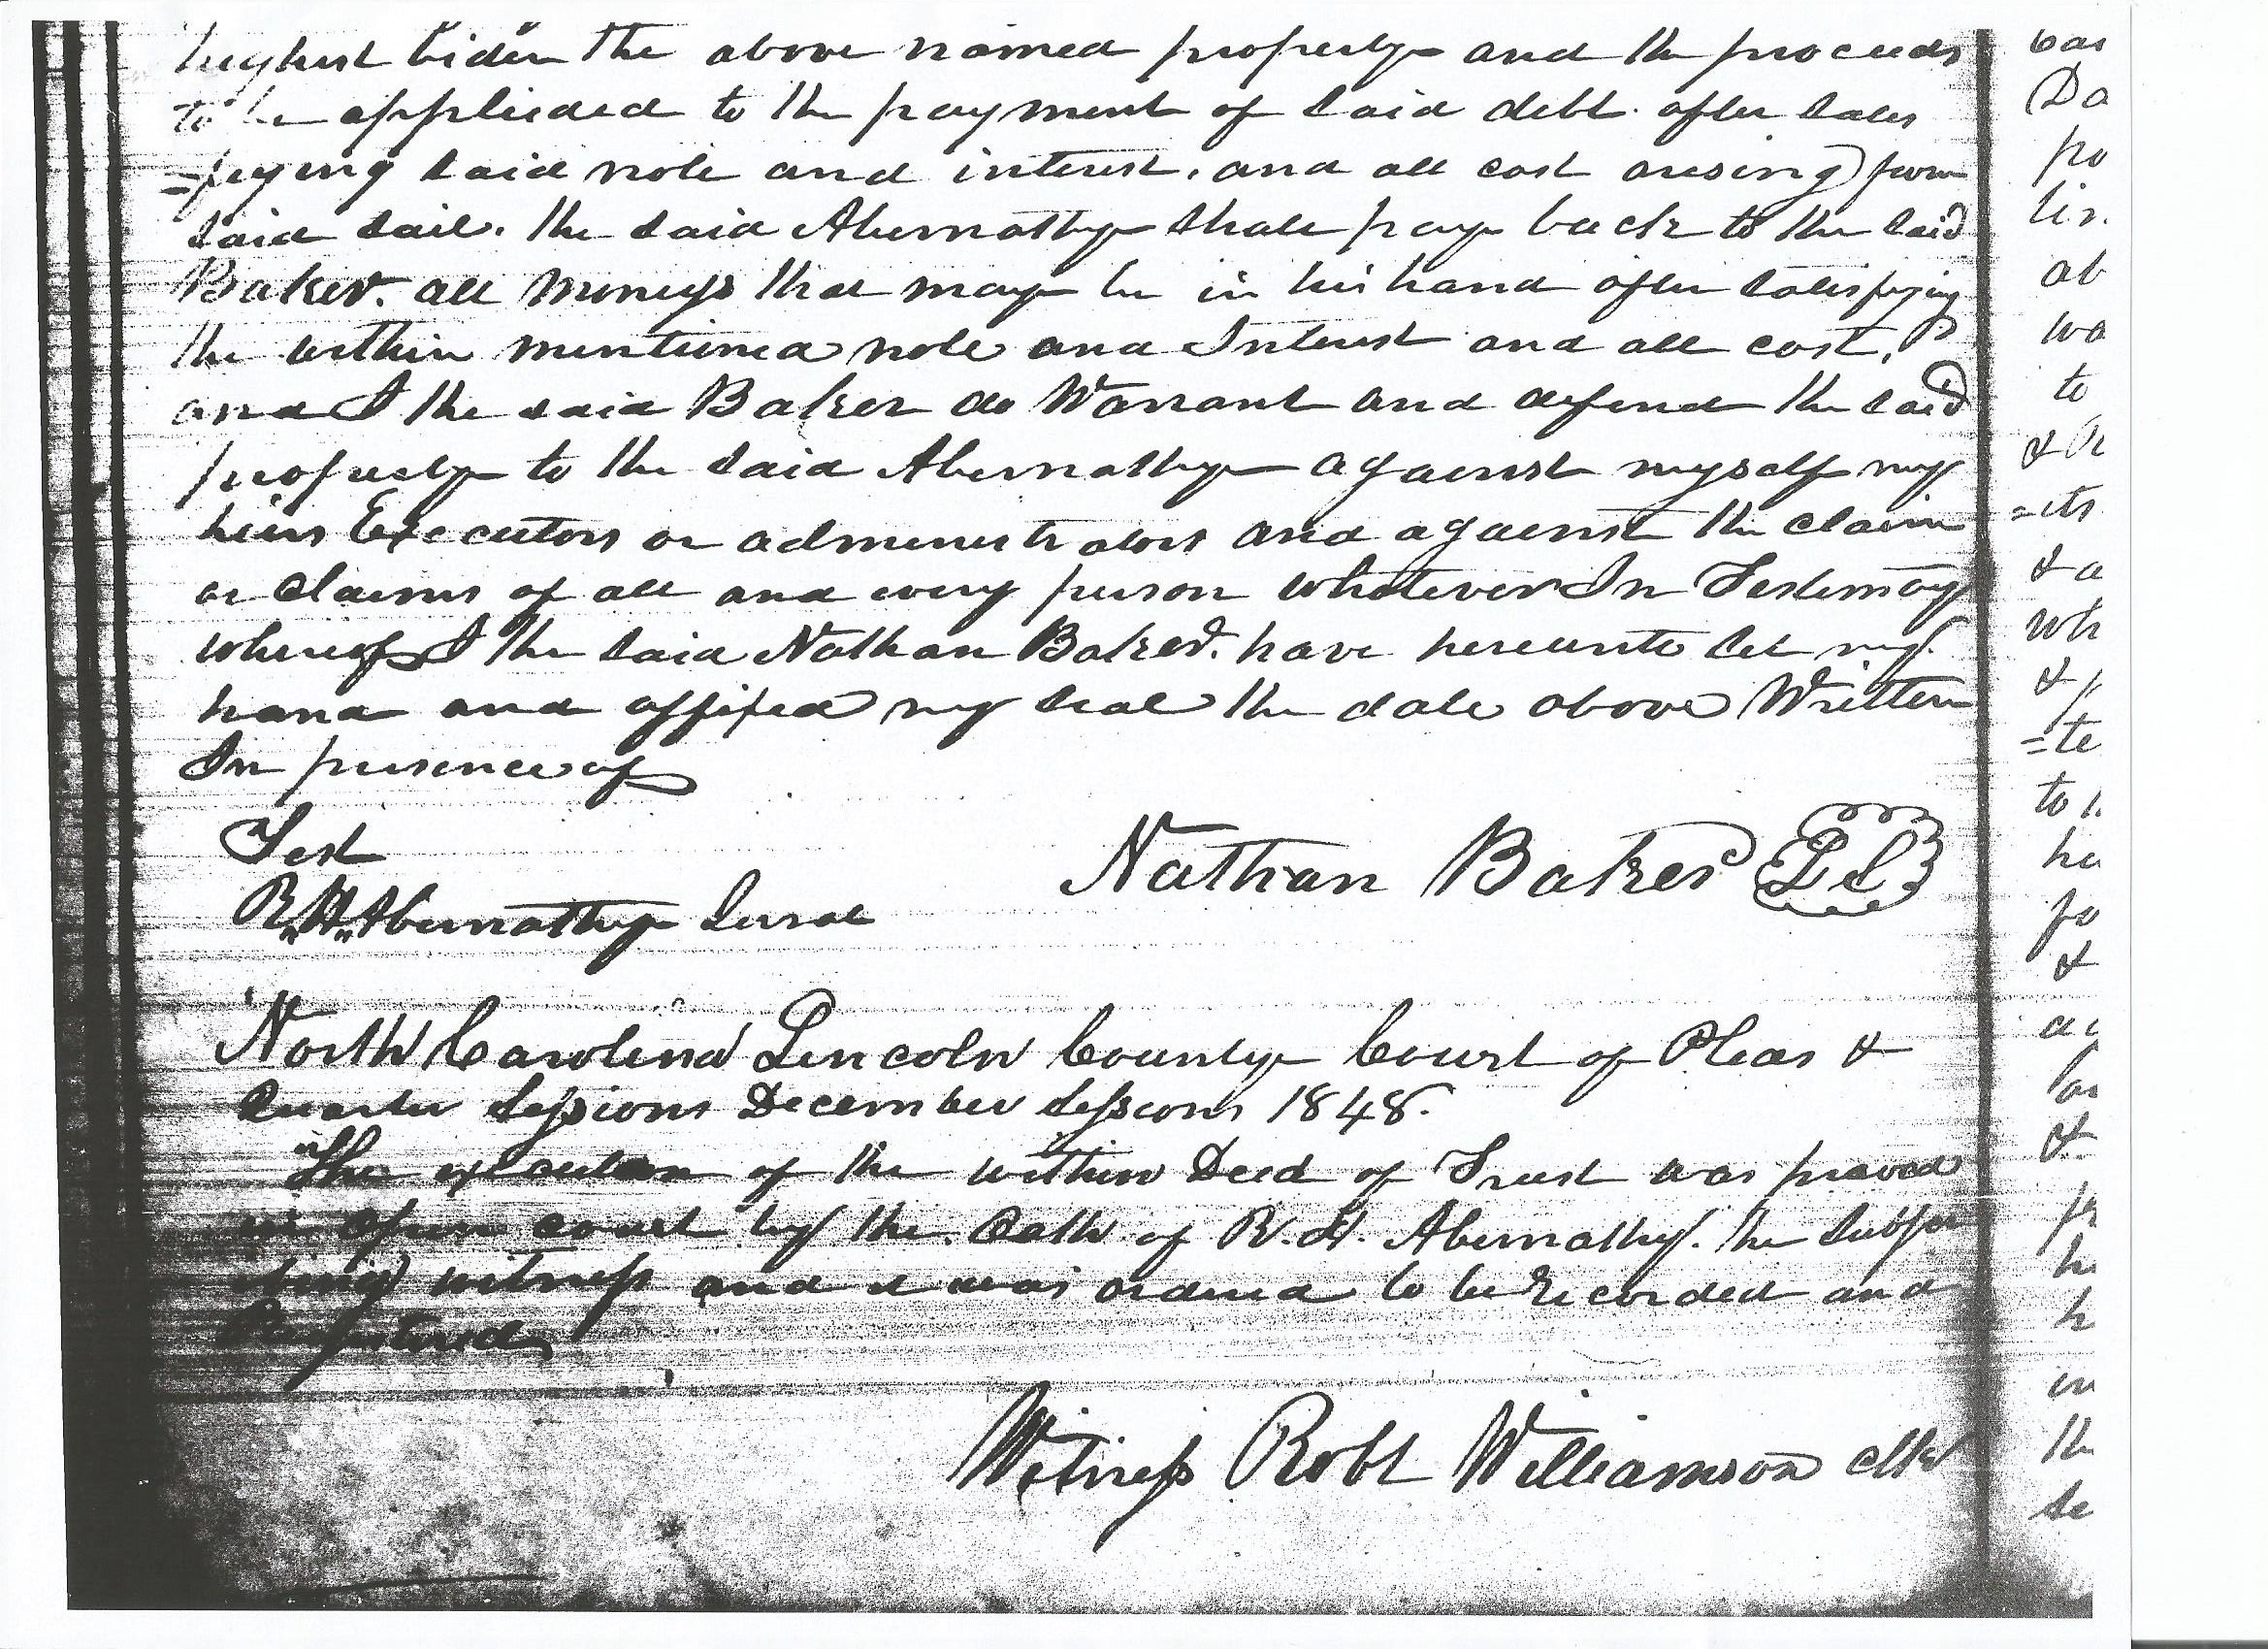 highest bider the above named property and the proceeds
to be applieded to the payment of said debt. after satis
=fying said note and interest, and all cost arising from
said sail. the said Abernathy shall pay back to the said
Baker. all moneys that may be in his hand after satisfying
the within mentioned note and Interest and all cost,
and I the said Baker do Warrant and defend the said
property to the said Abernathy against myself my
heirs Executors or administrators and against the claim
or claims of all and every person whatever In Testimony
whereof I the said Nathan Baker. have hereunto set my
hand and affixed my seal the date above Written
In presence of
Test
Nathan Baker LS
R,, H,, Abernathy Jurat
North Carolina Lincoln County Court of Pleas &
Quarter Sessions December Sessions 1848.
The execution of the within Deed of Trust was proved
in open court by the Oath of R. H. Abernathy. the Subscri
bing witness and it was ordered to be recorded and
Registered
Witness Robt Williamson clk
Da
po
ab
wa
to
&
=its
& a
wh
&
=te
to
&
&
in
th
se